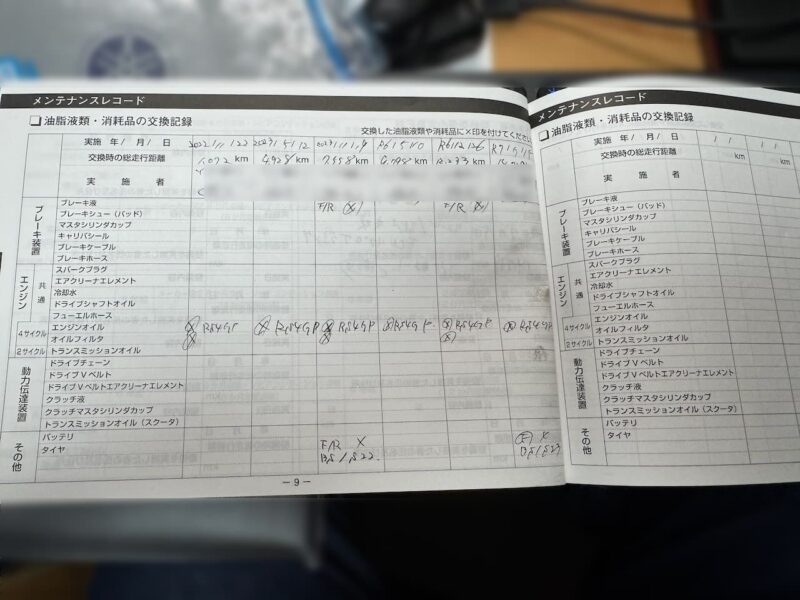 メンテナンスレコード
油脂液類・消耗品の交換記録
交換した油脂液類や消耗品に×印を付けてください
実施 年/月/日 2023/5/12
交換時の総走行距離 km km km km km
実施者
ブレーキ装置
ブレーキ液
ブレーキシュー(パッド) F/R × F/R ×
マスタシリンダカップ
キャリパシール
ブレーキケーブル
ブレーキホース
エンジン
共通
スパークプラグ
エアクリーナエレメント
冷却水
ドライブシャフトオイル
フューエルホース
4サイクル
エンジンオイル × RS4GP × RS4GP × RS4GP × RS4GP × RS4GP × RS4GP
オイルフィルタ × × ×
2サイクル
トランスミッションオイル
動力伝達装置
ドライブチェーン
ドライブVベルト
ドライブVベルトエアクリーナエレメント
クラッチ液
クラッチマスタシリンダカップ
トランスミッションオイル(スクータ)
その他
バッテリ
タイヤ F/R × ×
BS/S22 BS/S23
-9-
メンテナンスレコード
油脂液類・消耗品の交換記録
実施 年/月/日 / / / /
交換時の総走行距離 km km
実施者
ブレーキ装置
ブレーキ液
ブレーキシュー(パッド)
マスタシリンダカップ
キャリパシール
ブレーキケーブル
ブレーキホース
エンジン
共通
スパークプラグ
エアクリーナエレメント
冷却水
ドライブシャフトオイル
フューエルホース
4サイクル
エンジンオイル
オイルフィルタ
2サイクル
トランスミッションオイル
動力伝達装置
ドライブチェーン
ドライブVベルト
ドライブVベルトエアクリーナエレメント
クラッチ液
クラッチマスタシリンダカップ
トランスミッションオイル(スクータ)
その他
バッテリ
タイヤ